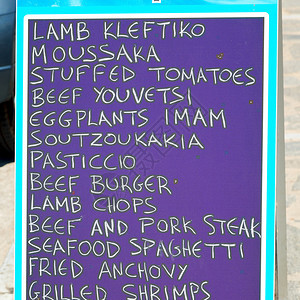 LAMB KLEFTIKO
MOUSSAKA
STUFFED TOMATOES
BEEF YOUVETSI
EGGPLANTS IMAM
SOUTZOUKAKIA
PASTICCIO
BEEF BURGER
LAMB CHOPS
BEEF AND PORK STEAK
SEAFOOD SPAGHETTI
FRIED ANCHOVY
GRILLED SHRIMPS